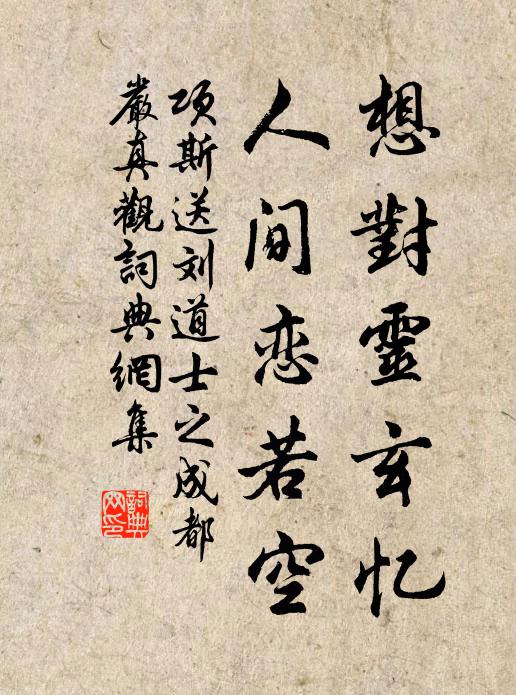 想對靈玄忆
人间恋若空
项斯送刘道士之成都
嚴真觀詞典網集
詞典
网印